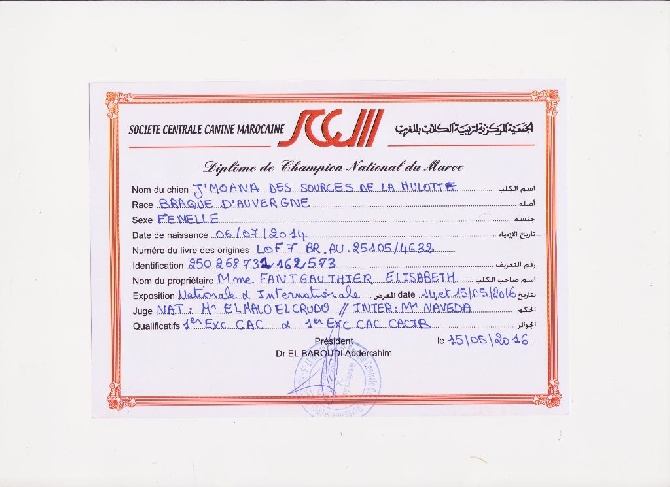 SOCIETE CENTRALE CANINE MAROCAINE SCCM الجمعية المركزية لتربية الكلاب بالمغرب
Diplôme de Champion National du Maroc
Nom du chien J'MOANA DES SOURCES DE LA HULOTTE اسم الكلب
Race BRAQUE D'AUVERGNE أصله
Sexe FEMELLE جنسه
Date de naissance 06/07/2014 تاريخ الازدياد
Numéro du livre des origines LOF 7 BR.AU. 25105/4632
Identification 250268732162573 رقم التعريف
Nom du propriétaire Mme FANTGAUTHIER ELISABETH اسم صاحب الكلب
Exposition Nationale & Internationale المعرض date 14 et 15/05/2016 بتاريخ
Juge NAT: Mr EL MALO EL CRUDO // INTER: Mr NAVEDA الحكم
Qualificatifs 1er EXC CAC & 1er EXC CAC CACIB الجوائز
Président le 15/05/2016
Dr EL BAROUDI Abderrahim